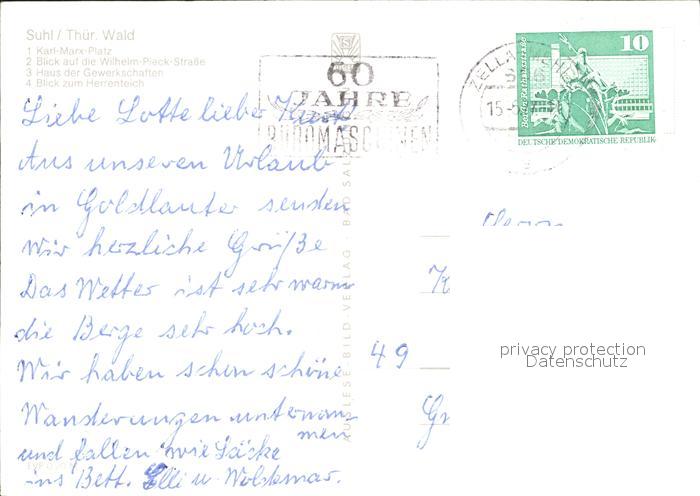 Suhl / Thür. Wald
1 Karl-Marx-Platz
2 Blick auf die Wilhelm-Pieck-Straße
3 Haus der Gewerkschaften
4 Blick zum Herrenteich
60
JAHRE
BÜROMASCHINEN
ZELLA-MEHLIS
15-
10
Berlin, Rathausstraße
DEUTSCHE DEMOKRATISCHE REPUBLIK
Liebe Lotte lieber Kurt
Aus unseren Urlaub
in Goldlauter senden
wir herzliche Grüße
Das Wetter ist sehr warm
die Berge sehr hoch.
Wir haben schon schöne
Wanderungen unternom
men
und fallen wie Säcke
ins Bett. Elli u. Woldemar.
AUSLESE BILD VERLAG · BAD SAL
Herrn
K
49
Gr
privacy protection
Datenschutz